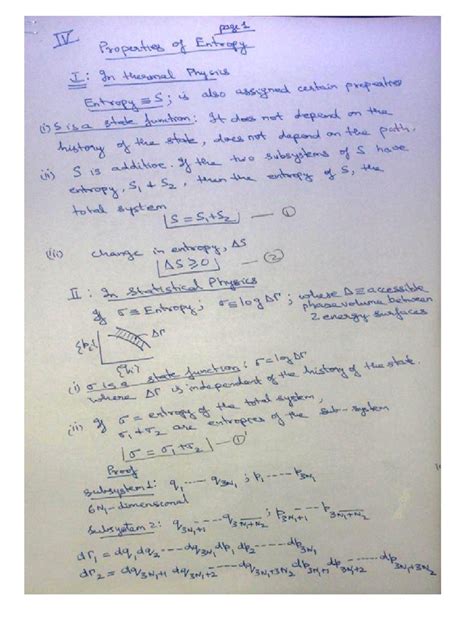 page 1
IV Properties of Entropy
I : In thermal Physics
Entropy ≡ S ; is also assigned certain properties
(i) S is a state function : It does not depend on the
history of the state, does not depend on the path.
(ii) S is additive. If the two subsystems of S have
entropy, S₁ & S₂, then the entropy of S, the
total system
S = S₁+S₂ — ①
(iii) change in entropy, ΔS
ΔS ≥ 0 — ②
II : In Statistical Physics
If σ ≡ Entropy ; σ ≡ log ΔΓ ; where Δ ≡ accessible
phase volume between
2 energy surfaces
{p_i} ΔΓ
{q_i}
(i) σ is a state function : σ = log ΔΓ
where ΔΓ is independent of the history of the state.
(ii) If σ = entropy of the total system,
σ₁ & σ₂ are entropies of the sub-system
σ = σ₁+σ₂ — ①'
Proof
Subsystem 1 : q₁ ---- q₃N₁ ; p₁ ---- p₃N₁
6N₁-dimensional
Subsystem 2 : q₃N₁+1 ---- q₃N₁+N₂ ; p₃N₁+1 ---- p₃N₁+N₂
dΓ₁ = dq₁dq₂ ---- dq₃N₁ dp₁ dp₂ ---- dp₃N₁
dΓ₂ = dq₃N₁+1 dq₃N₁+2 ---- dq₃N₁+3N₂ dp₃N₁+1 dp₃N₁+2 ---- dp₃N₁+3N₂